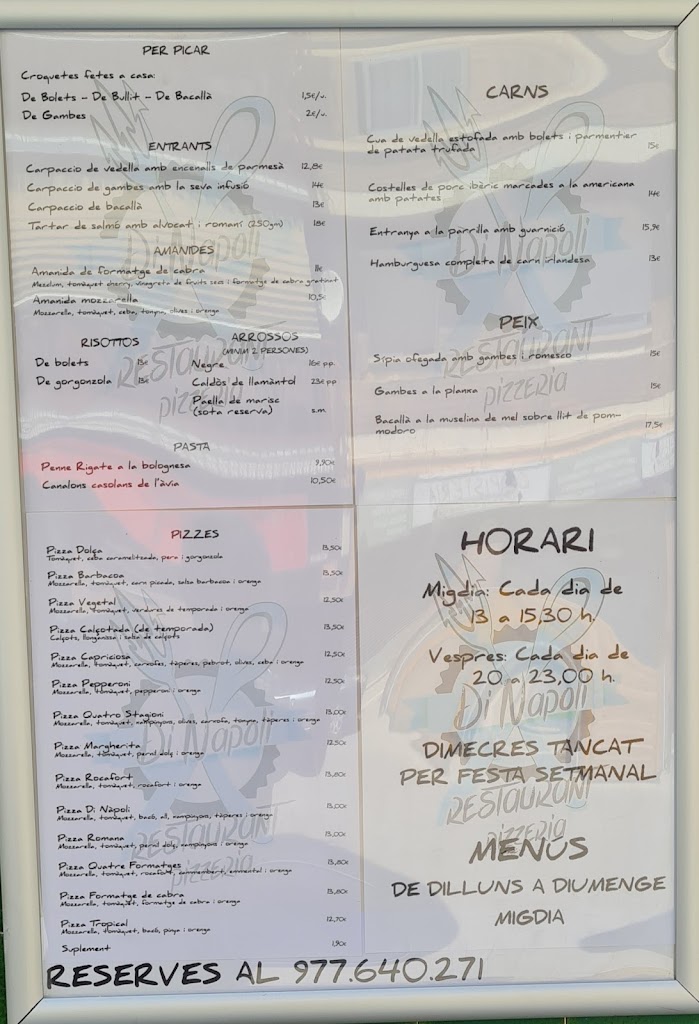 PER PICAR
Croquetes fetes a casa:
De Bolets - De Bullit - De Bacallà 1,5€/u.
De Gambes 2€/u.
ENTRANTS
Carpaccio de vedella amb encenalls de parmesà 12,8€
Carpaccio de gambes amb la seva infusió 14€
Carpaccio de bacallà 13€
Tartar de salmó amb alvocat i romaní (250gm) 18€
AMANIDES
Amanida de formatge de cabra 11€
Mesclum, tomàquet cherry, vinagreta de fruits secs i formatge de cabra gratinat
Amanida mozzarella 10,5€
Mozzarella, tomàquet, ceba, tonyna, olives i orenga
RISOTTOS
De bolets 13€
De gorgonzola 13€
ARROSSOS
(MINIM 2 PERSONES)
Negre 16€ p.p.
Caldós de llamàntol 23€ p.p
Paella de marisc
(sota reserva) s.m.
PASTA
Penne Rigate a la bolognesa 9,90€
Canalons casolans de l'àvia 10,50€
CARNS
Cua de vedella estofada amb bolets i parmentier
de patata trufada 15€
Costelles de porc ibèric marcades a la americana
amb patates 14€
Entranya a la parrilla amb guarnició 15,9€
Hamburguesa completa de carn irlandesa 13€
PEIX
Sípia ofegada amb gambes i romesco 15€
Gambes a la planxa 15€
Bacallà a la muselina de mel sobre llit de pom-
modoro 17,5€
PIZZES
Pizza Dolça 13,50€
Tomàquet, ceba caramelitzada, pera i gorgonzola
Pizza Barbacoa 13,50€
Mozzarella, tomàquet, carn picada, salsa barbacoa i orenga
Pizza Vegetal 12,50€
Mozzarella, tomàquet, verdures de temporada i orenga
Pizza Calçotada (de temporada) 13,50€
Calçots, llonganissa i salsa de calçots
Pizza Capriciosa 12,50€
Mozzarella, tomàquet, carxofes, tàperes, pebrot, olives, ceba i orenga
Pizza Pepperoni 12,50€
Mozzarella, tomàquet, pepperoni i orenga
Pizza Quatro Stagioni 13,00€
Mozzarella, tomàquet, xampinyons, olives, carxofa, tonyna, tàperes i orenga
Pizza Margherita 12,50€
Mozzarella, tomàquet, pernil dolç i orenga
Pizza Rocafort 13,80€
Mozzarella, tomàquet, rocafort i orenga
Pizza Di Nàpoli 13,00€
Mozzarella, tomàquet, bacó, all, xampinyons, tàperes i orenga
Pizza Romana 13,00€
Mozzarella, tomàquet, pernil dolç, xampinyons i orenga
Pizza Quatre Formatges 13,80€
Mozzarella, tomàquet, rocafort, cammembert, emmental i orenga
Pizza Formatge de cabra 13,80€
Mozzarella, tomàquet, formatge de cabra i orenga
Pizza Tropical 12,70€
Mozzarella, tomàquet, bacó, pinya i orenga
Suplement 1,90€
HORARI
Migdia: Cada dia de
13 a 15,30 h.
Vespres: Cada dia de
20 a 23,00 h.
DIMECRES TANCAT
PER FESTA SETMANAL
MENÚS
DE DILLUNS A DIUMENGE
MIGDIA
RESERVES AL 977.640.271
Di Napoli
RESTAURANT
pizzeria
Di Napoli
RESTAURANT
pizzeria
Di Napoli
RESTAURANT
pizzeria
Di Napoli
RESTAURANT
pizzeria